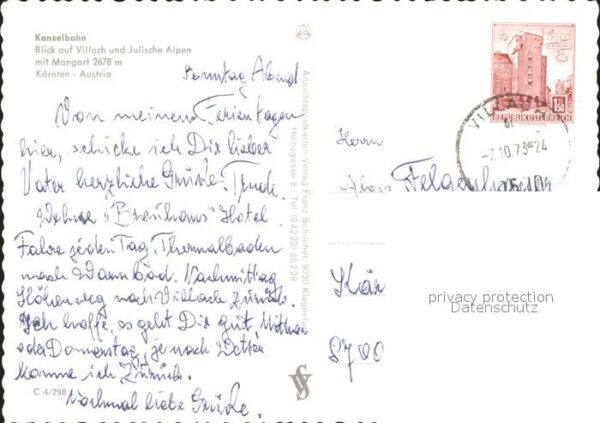 Kanzelbahn
Blick auf Villach und Julische Alpen
mit Mangart 2678 m
Kärnten - Austria
Sonntag Abend
Von meinem Ferientagen
hier, schicke ich Dir lieber
Vater herzliche Grüsse
Wohne "Bräuhaus" Hotel.
Fahre jeden Tag Thermalbaden
nach Warmbad. Nachmittag
Höhenweg nach Villach zurück.
Ich hoffe, es geht Dir gut,
oder Donnerstag, je nach Wetter
komme ich zurück.
Nochmal liebe Grüsse.
C 4/298
Ansichtskarten Verlag Franz Schilcher 9020 Klagenfurt
Tel. (0 42 22) 85 2 98
REPUBLIK ÖSTERREICH
VILLACH
-7.10.73-24
Herrn
Kär
8700
privacy protection
Datenschutz